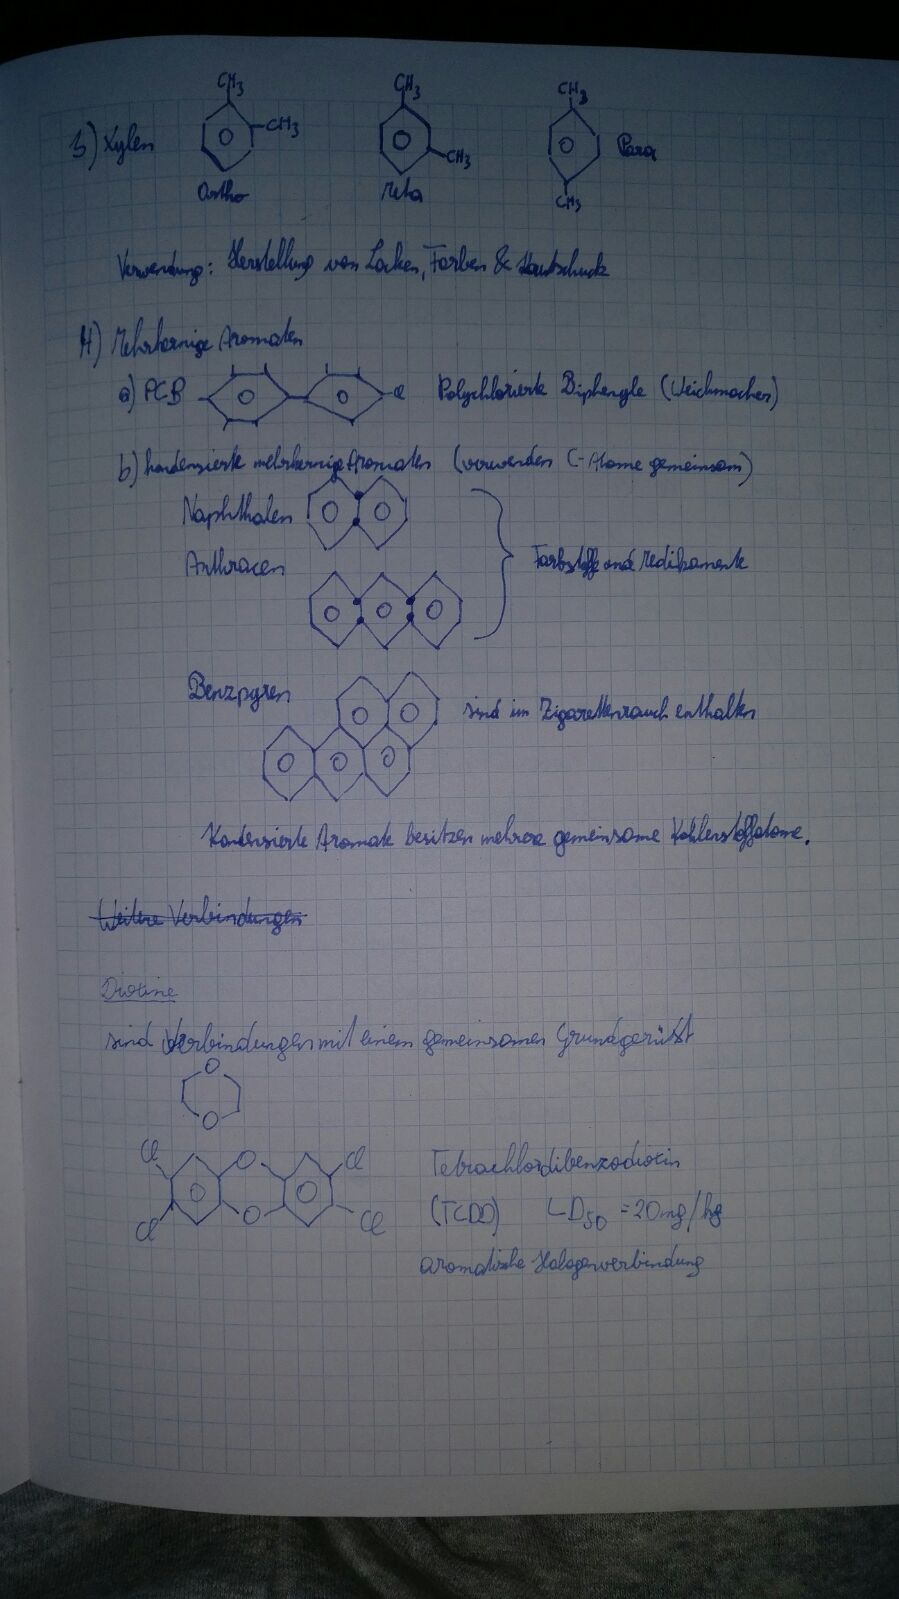 3) Xylen
CH3 CH3 CH3
CH3 CH3
Ortho Meta Para
CH3
Verwendung: Herstellung von Lacken, Farben & Kautschuck
4) Mehrkernige Aromaten
a) PCB Cl Polychlorierte Biphenyle (Weichmacher)
b) kondensierte mehrkernige Aromaten (verwenden C-Atome gemeinsam)
Naphthalen
Anthracen
Farbstoffe und Medikamente
Benzpyren
sind im Zigarettenrauch enthalten
Kondensierte Aromate besitzen mehrere gemeinsame Kohlenstoffatome.
Weitere Verbindungen
Dioxine
sind Verbindungen mit einem gemeinsamen Grundgerüst
O
O
Cl O Cl Tetrachlordibenzodioxin
Cl O Cl (TCDD) LD50 = 20mg/kg
aromatische Halogenverbindung